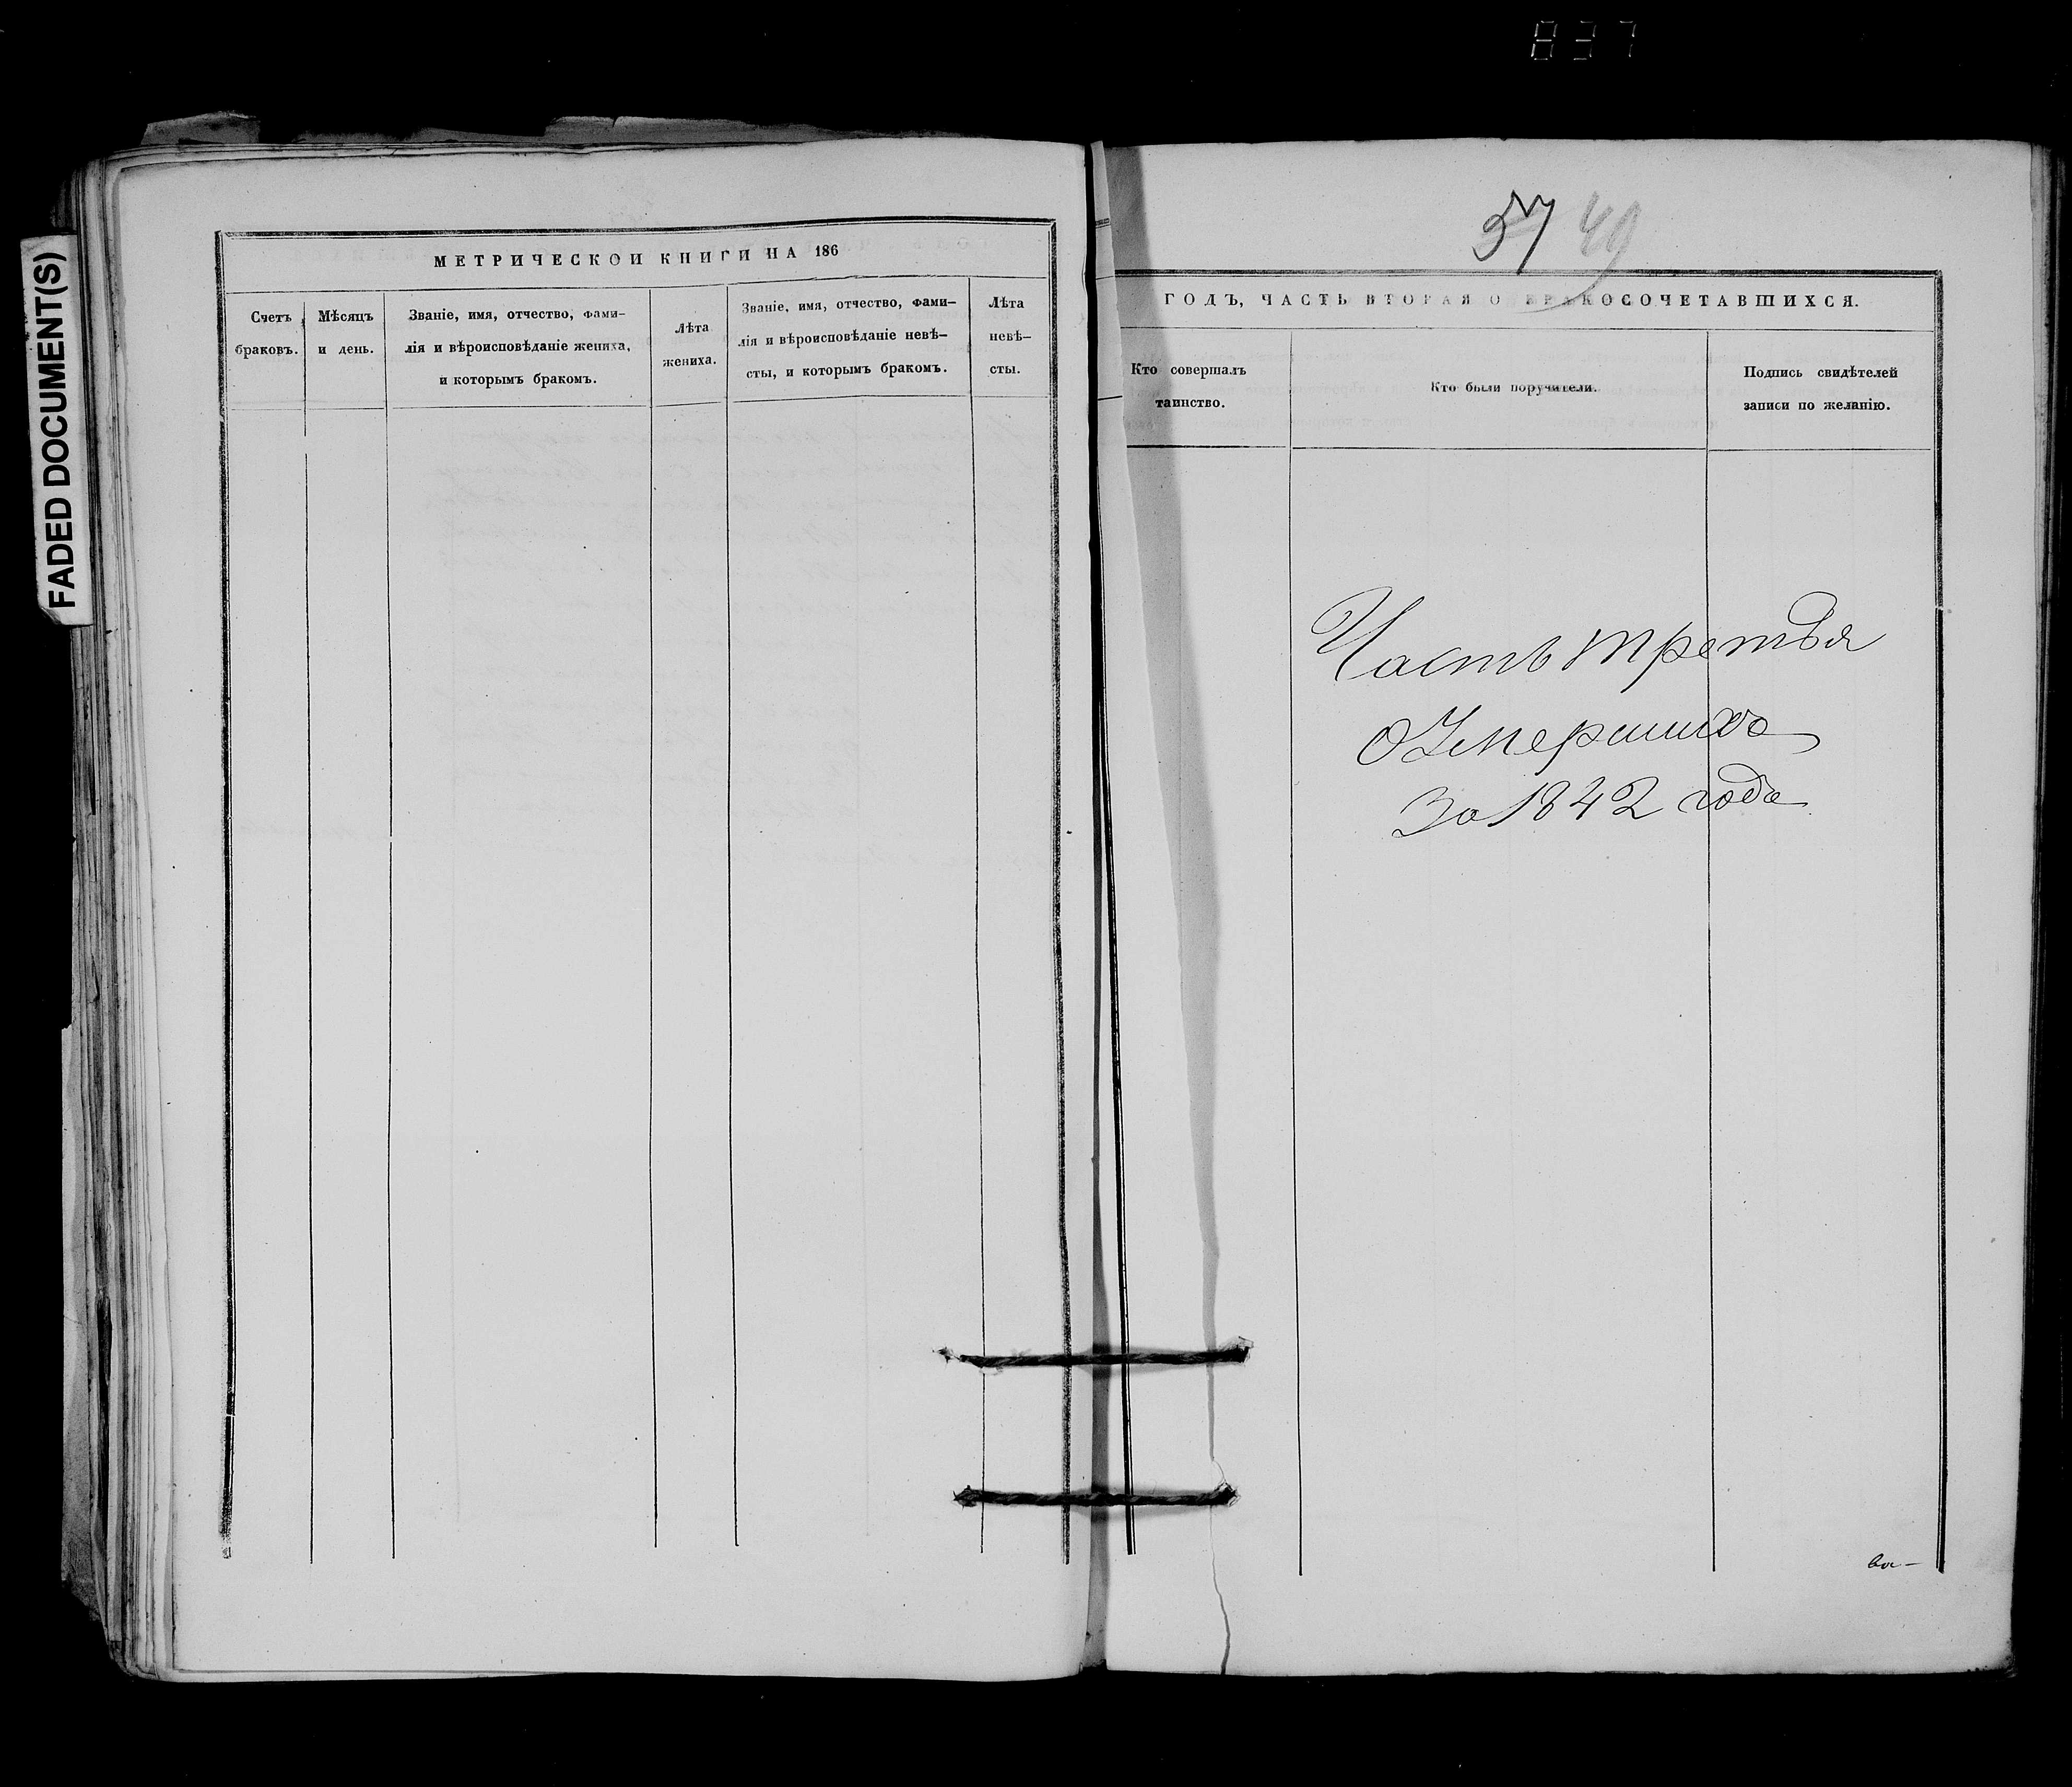 837
FADED DOCUMENT(S)
МЕТРИЧЕСКОЙ КНИГИ НА 186
Счетъ браковъ.
Мѣсяцъ и день.
Званіе, имя, отчество, фами-
лія и вѣроисповѣданіе жениха,
и которымъ бракомъ.
Лѣта
жениха.
Званіе, имя, отчество, фами-
лія и вѣроисповѣданіе невѣ-
сты, и которымъ бракомъ.
Лѣта
невѣ-
сты.
57 49
ГОДЪ, ЧАСТЬ ВТОРАЯ О БРАКОСОЧЕТАВШИХСЯ.
Кто совершалъ
таинство.
Кто были поручители.
Подпись свидѣтелей
записи по желанію.
Часть третья
О Умершихъ
За 1842 года